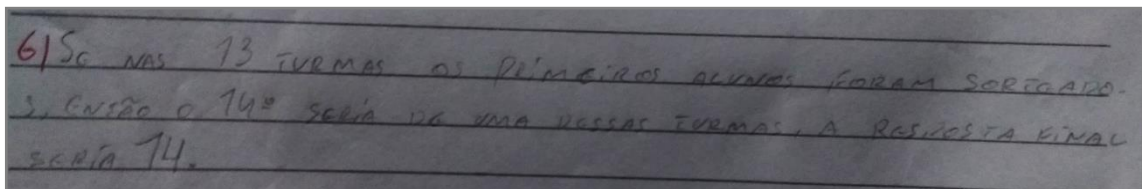 6) SE NAS 13 TURMAS OS PRIMEIROS ALUNOS FORAM SORTEADO-
S, ENTÃO O 14º SERIA DE UMA DESSAS TURMAS, A RESPOSTA FINAL
SERIA 14.